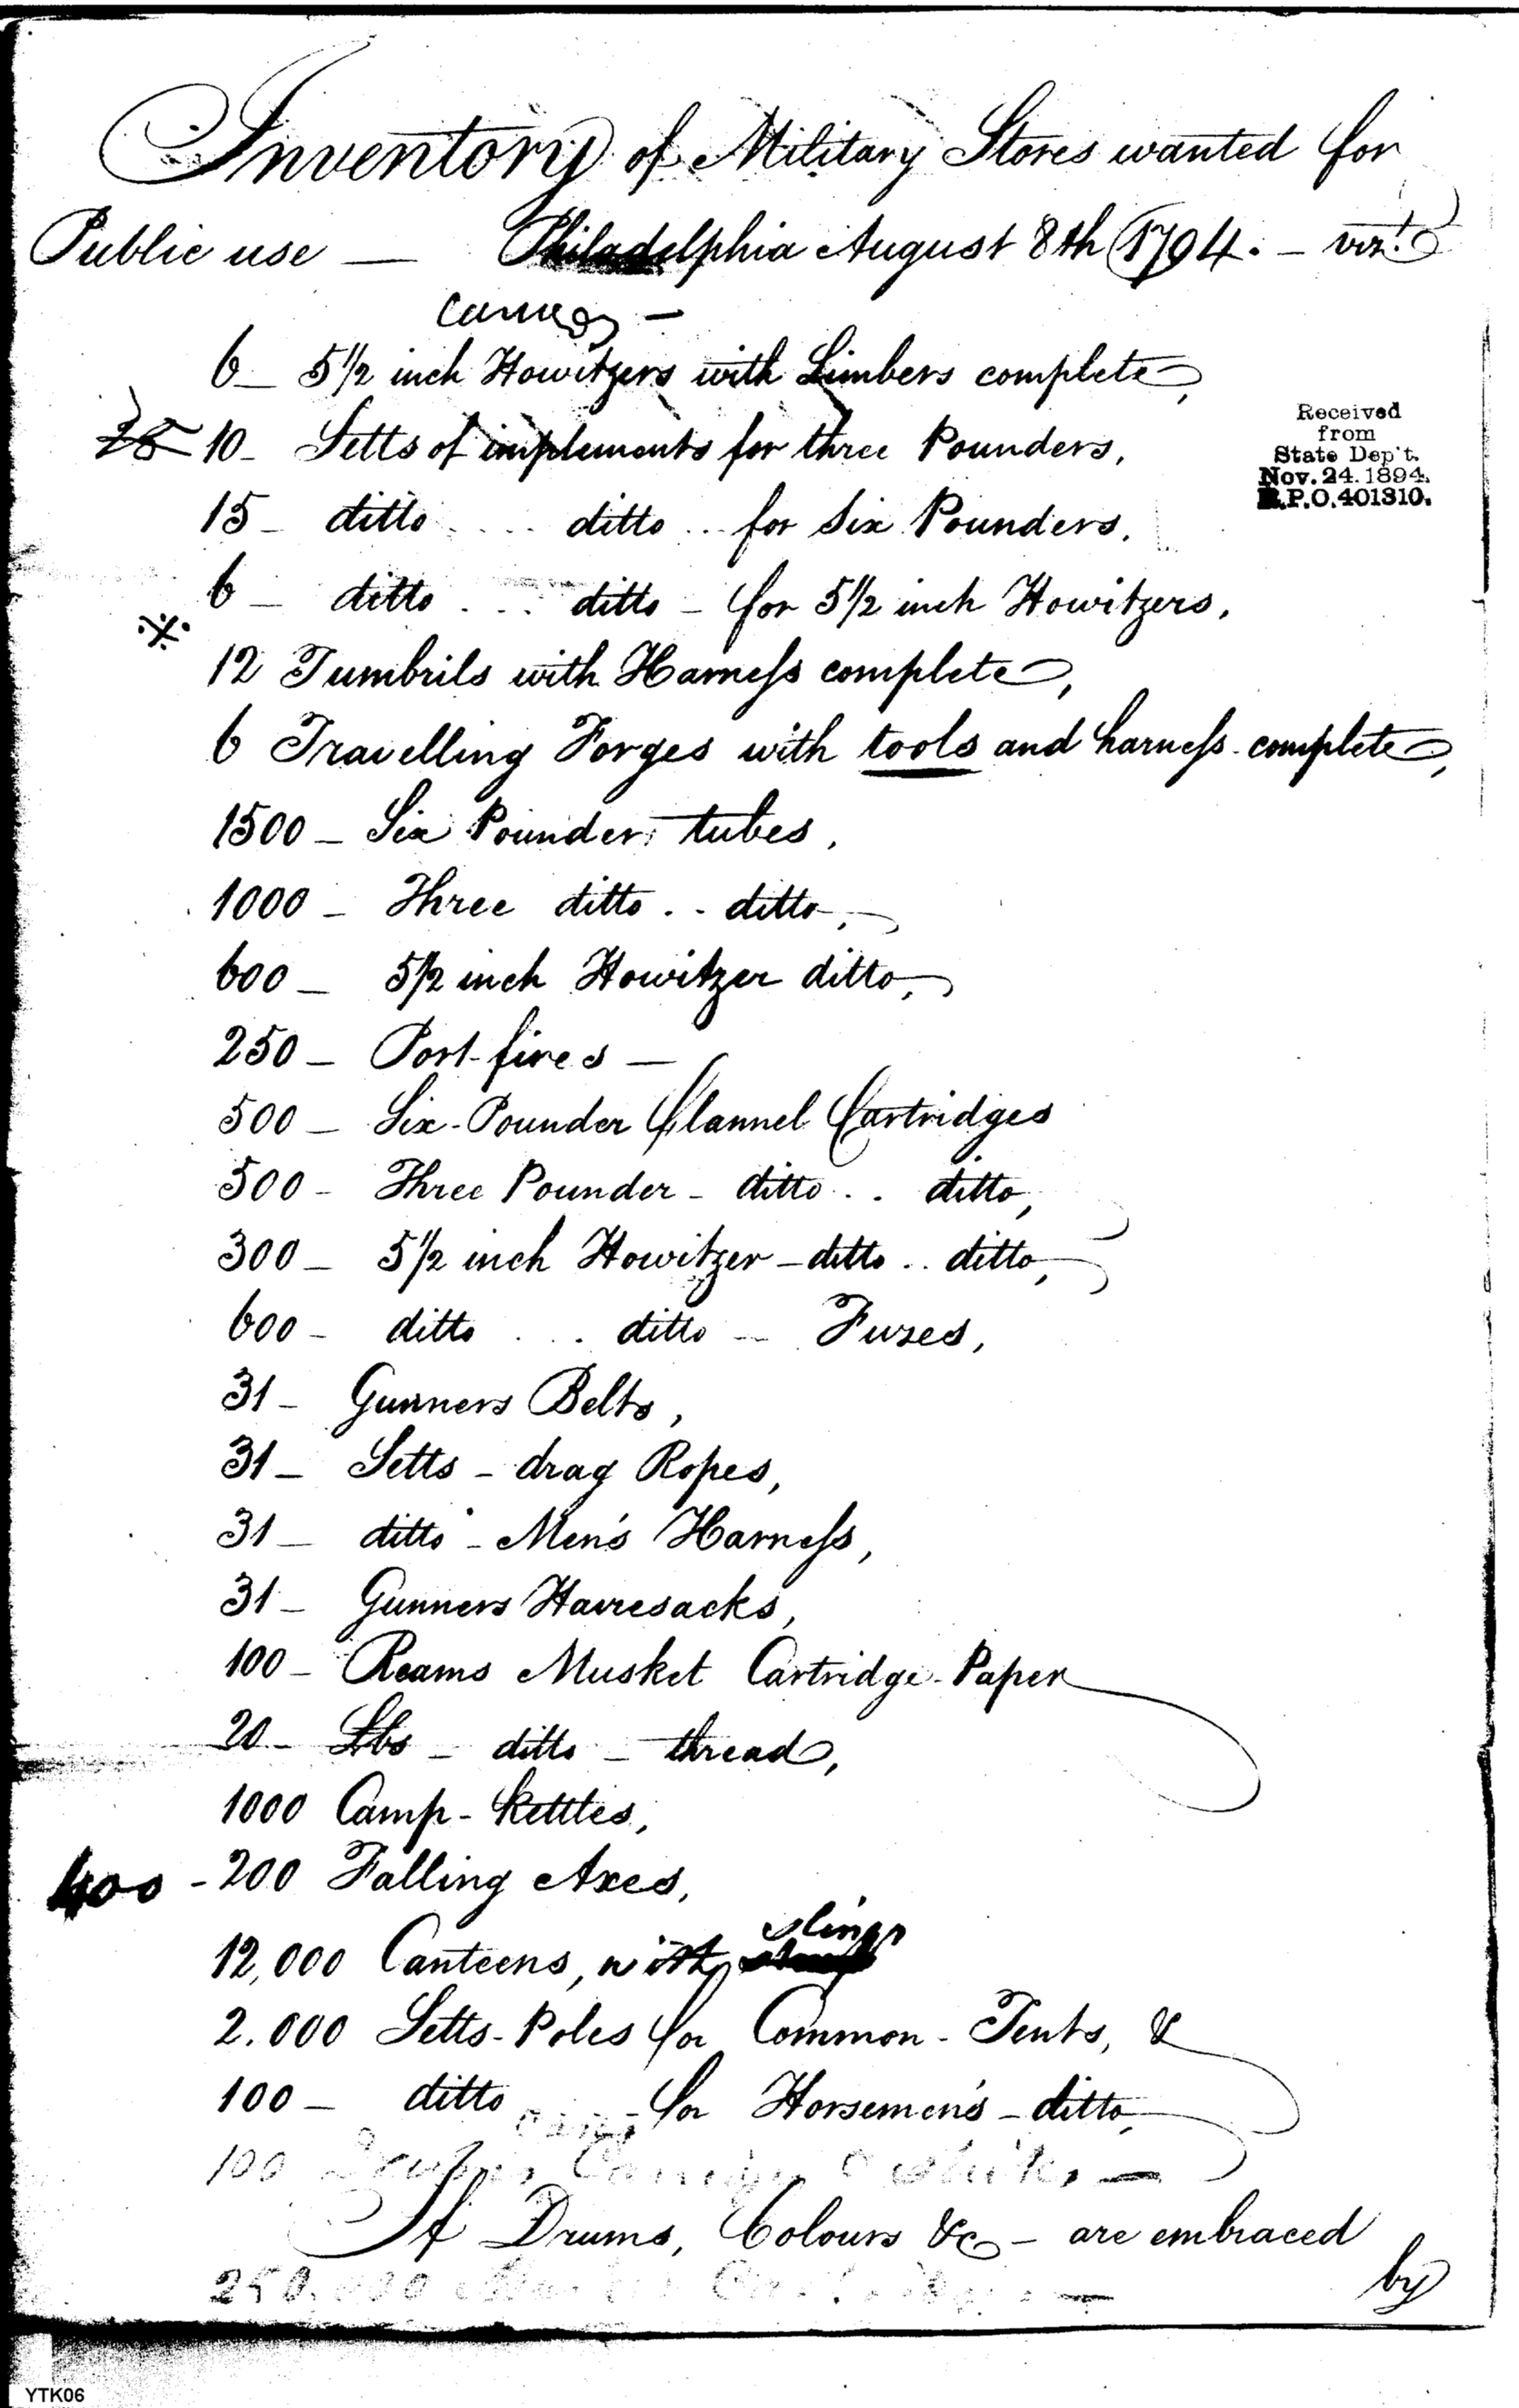 Inventory of Military Stores wanted for
Public use — Philadelphia August 8th 1794. – vizt.
6 – 5 1/2 inch Howitzers with Limbers complete,
25 10 – Setts of implements for three Pounders,
15 – ditto .... ditto .. for Six Pounders,
6 – ditto .... ditto – for 5 1/2 inch Howitzers,
12 Tumbrils with Harness complete,
6 Travelling Forges with tools and harness complete,
1500 – Six Pounder tubes,
1000 – Three ditto .. ditto,
600 – 5 1/2 inch Howitzer ditto,
250 – Port-fires —
500 – Six-Pounder flannel Cartridges
500 – Three Pounder – ditto .. ditto,
300 – 5 1/2 inch Howitzer – ditto .. ditto,
600 – ditto ... ditto -- Fuzes,
31 – Gunners Belts,
31 – Setts – drag Ropes,
31 – ditto – Men's Harness,
31 – Gunners Haversacks,
100 – Reams Musket Cartridge-Paper
20 – Lbs – ditto – thread,
1000 Camp-kettles,
400 - 200 Falling Axes,
slings
12,000 Canteens, with
2.000 Setts-Poles for Common-Tents, &
100 – ditto for Horsemen's – ditto,
100
If Drums, Colours &c – are embraced
by
250.000
Received
from
State Dep't.
Nov. 24. 1894.
R.P.O. 401310.
YTK06